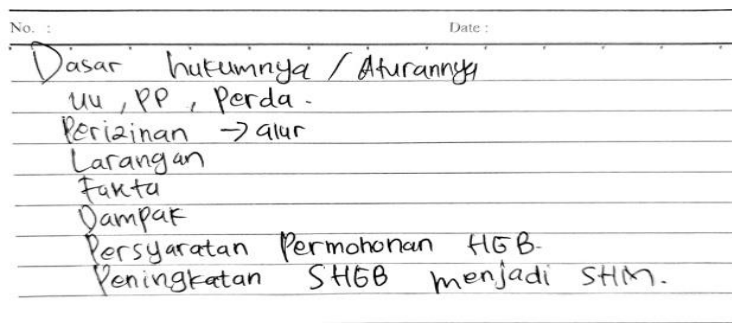 No. :
Date :
Dasar hukumnya / Aturannya
UU, PP, Perda.
Perizinan → alur
Larangan
Fakta
Dampak
Persyaratan Permohonan HGB.
Peningkatan SHGB menjadi SHM.